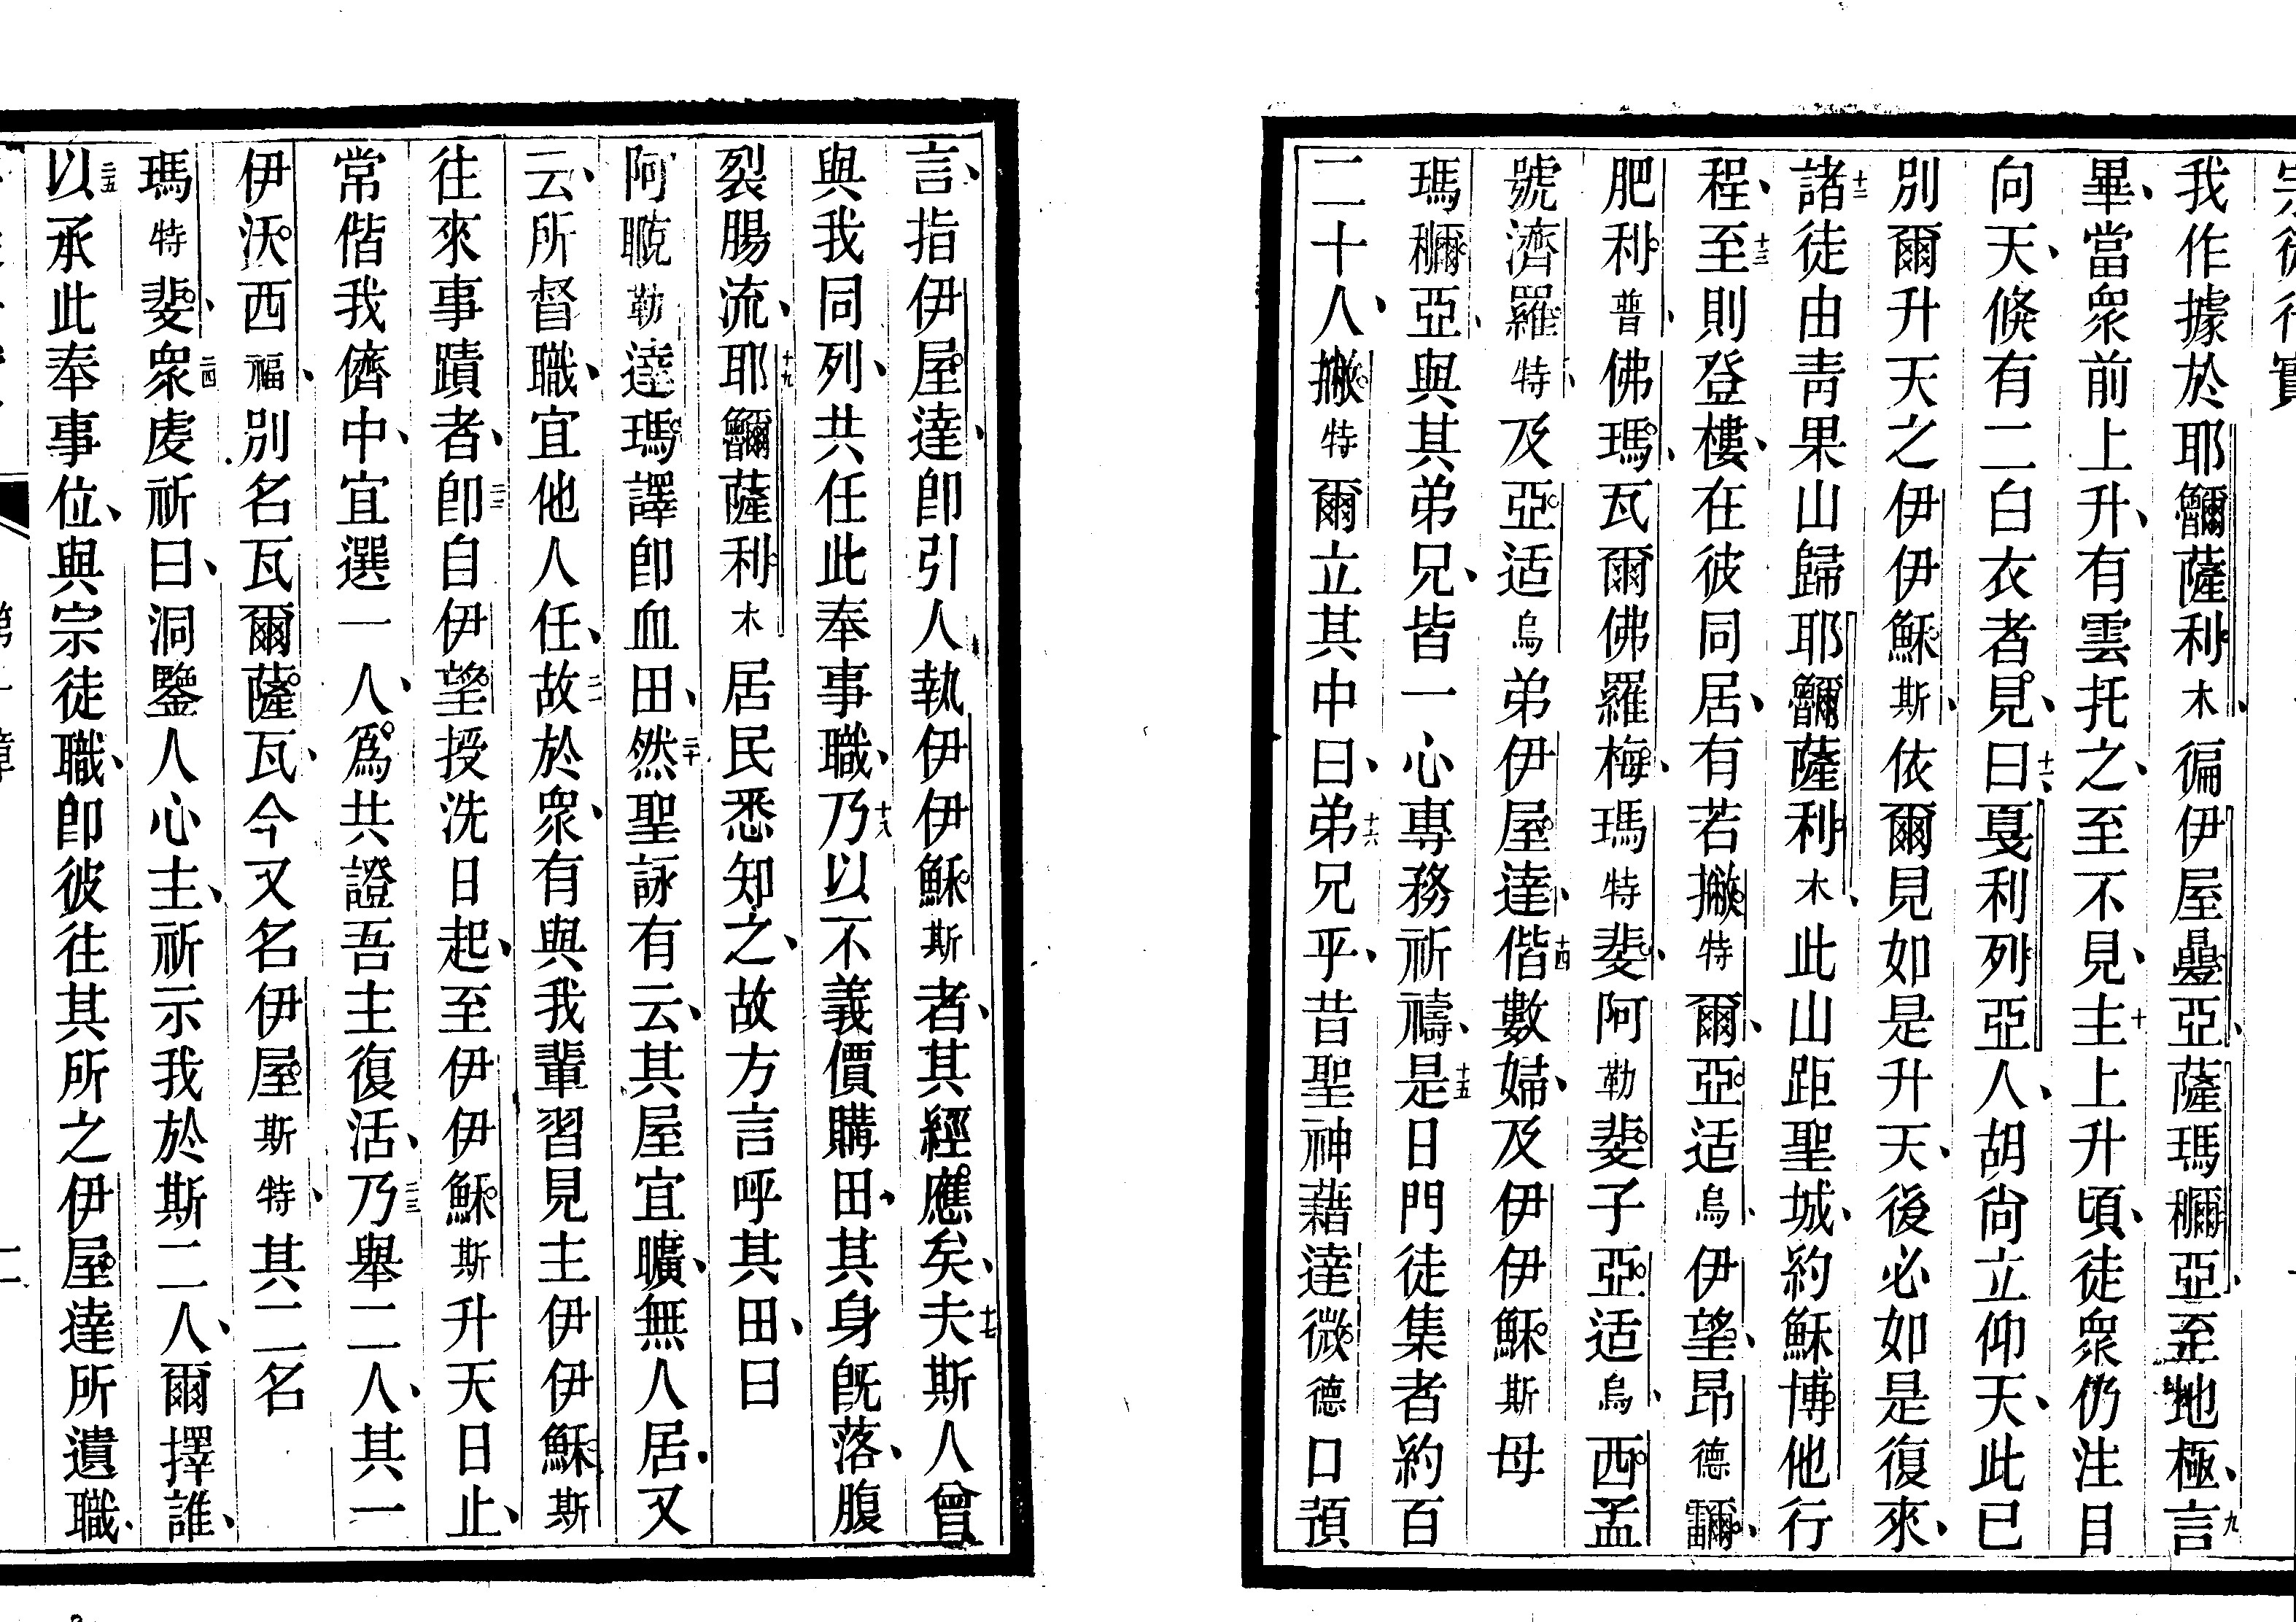 宗徒行實
我作據於耶𪓬薩利木徧伊屋疊亞薩瑪𥣥亞至地極言九
畢當眾前上升有雲托之至不見主十上升頃徒眾仍注目
向天倏有二白衣者見曰十一戛利列亞人胡尙立仰天此已
別爾升天之伊伊穌斯依爾見如是升天後必如是復來
諸十二徒由靑果山歸耶𪓬薩利木此山距聖城約穌博他行
程至十三則登樓在彼同居有若撇特爾亞适烏伊望昂德
肥利普佛瑪瓦爾佛羅梅瑪特斐阿勒斐子亞适烏西孟
號濟羅特及亞适烏弟伊屋達偕十四數婦及伊伊穌斯母
瑪𥣥亞與其弟兄皆一心專務祈禱是十五日門徒集者約百
二十人撇特爾立其中曰弟十六兄乎昔聖神藉達微德口預
言指伊屋達卽引人執伊伊穌斯者其經應矣夫十七斯人曾
與我同列共任此奉事職乃十八以不義價購田其身旣落腹
裂腸流耶十九𪓬薩利木居民悉知之故方言呼其田曰
阿勒達瑪譯卽血田然二十聖詠有云其屋宜曠無人居又
云所督職宜他人任故二一於眾有與我輩習見主伊伊穌斯
往來事蹟者卽二二自伊望授洗日起至伊伊穌斯升天日止
常偕我儕中宜選一人爲共證吾主復活乃二三舉二人其一
伊沃西福別名瓦爾薩瓦今又名伊屋斯特其二名
瑪特斐眾二四虔祈曰洞鑒人心主祈示我於斯二人爾擇誰
以二五承此奉事位與宗徒職卽彼往其所之伊屋達所遺職